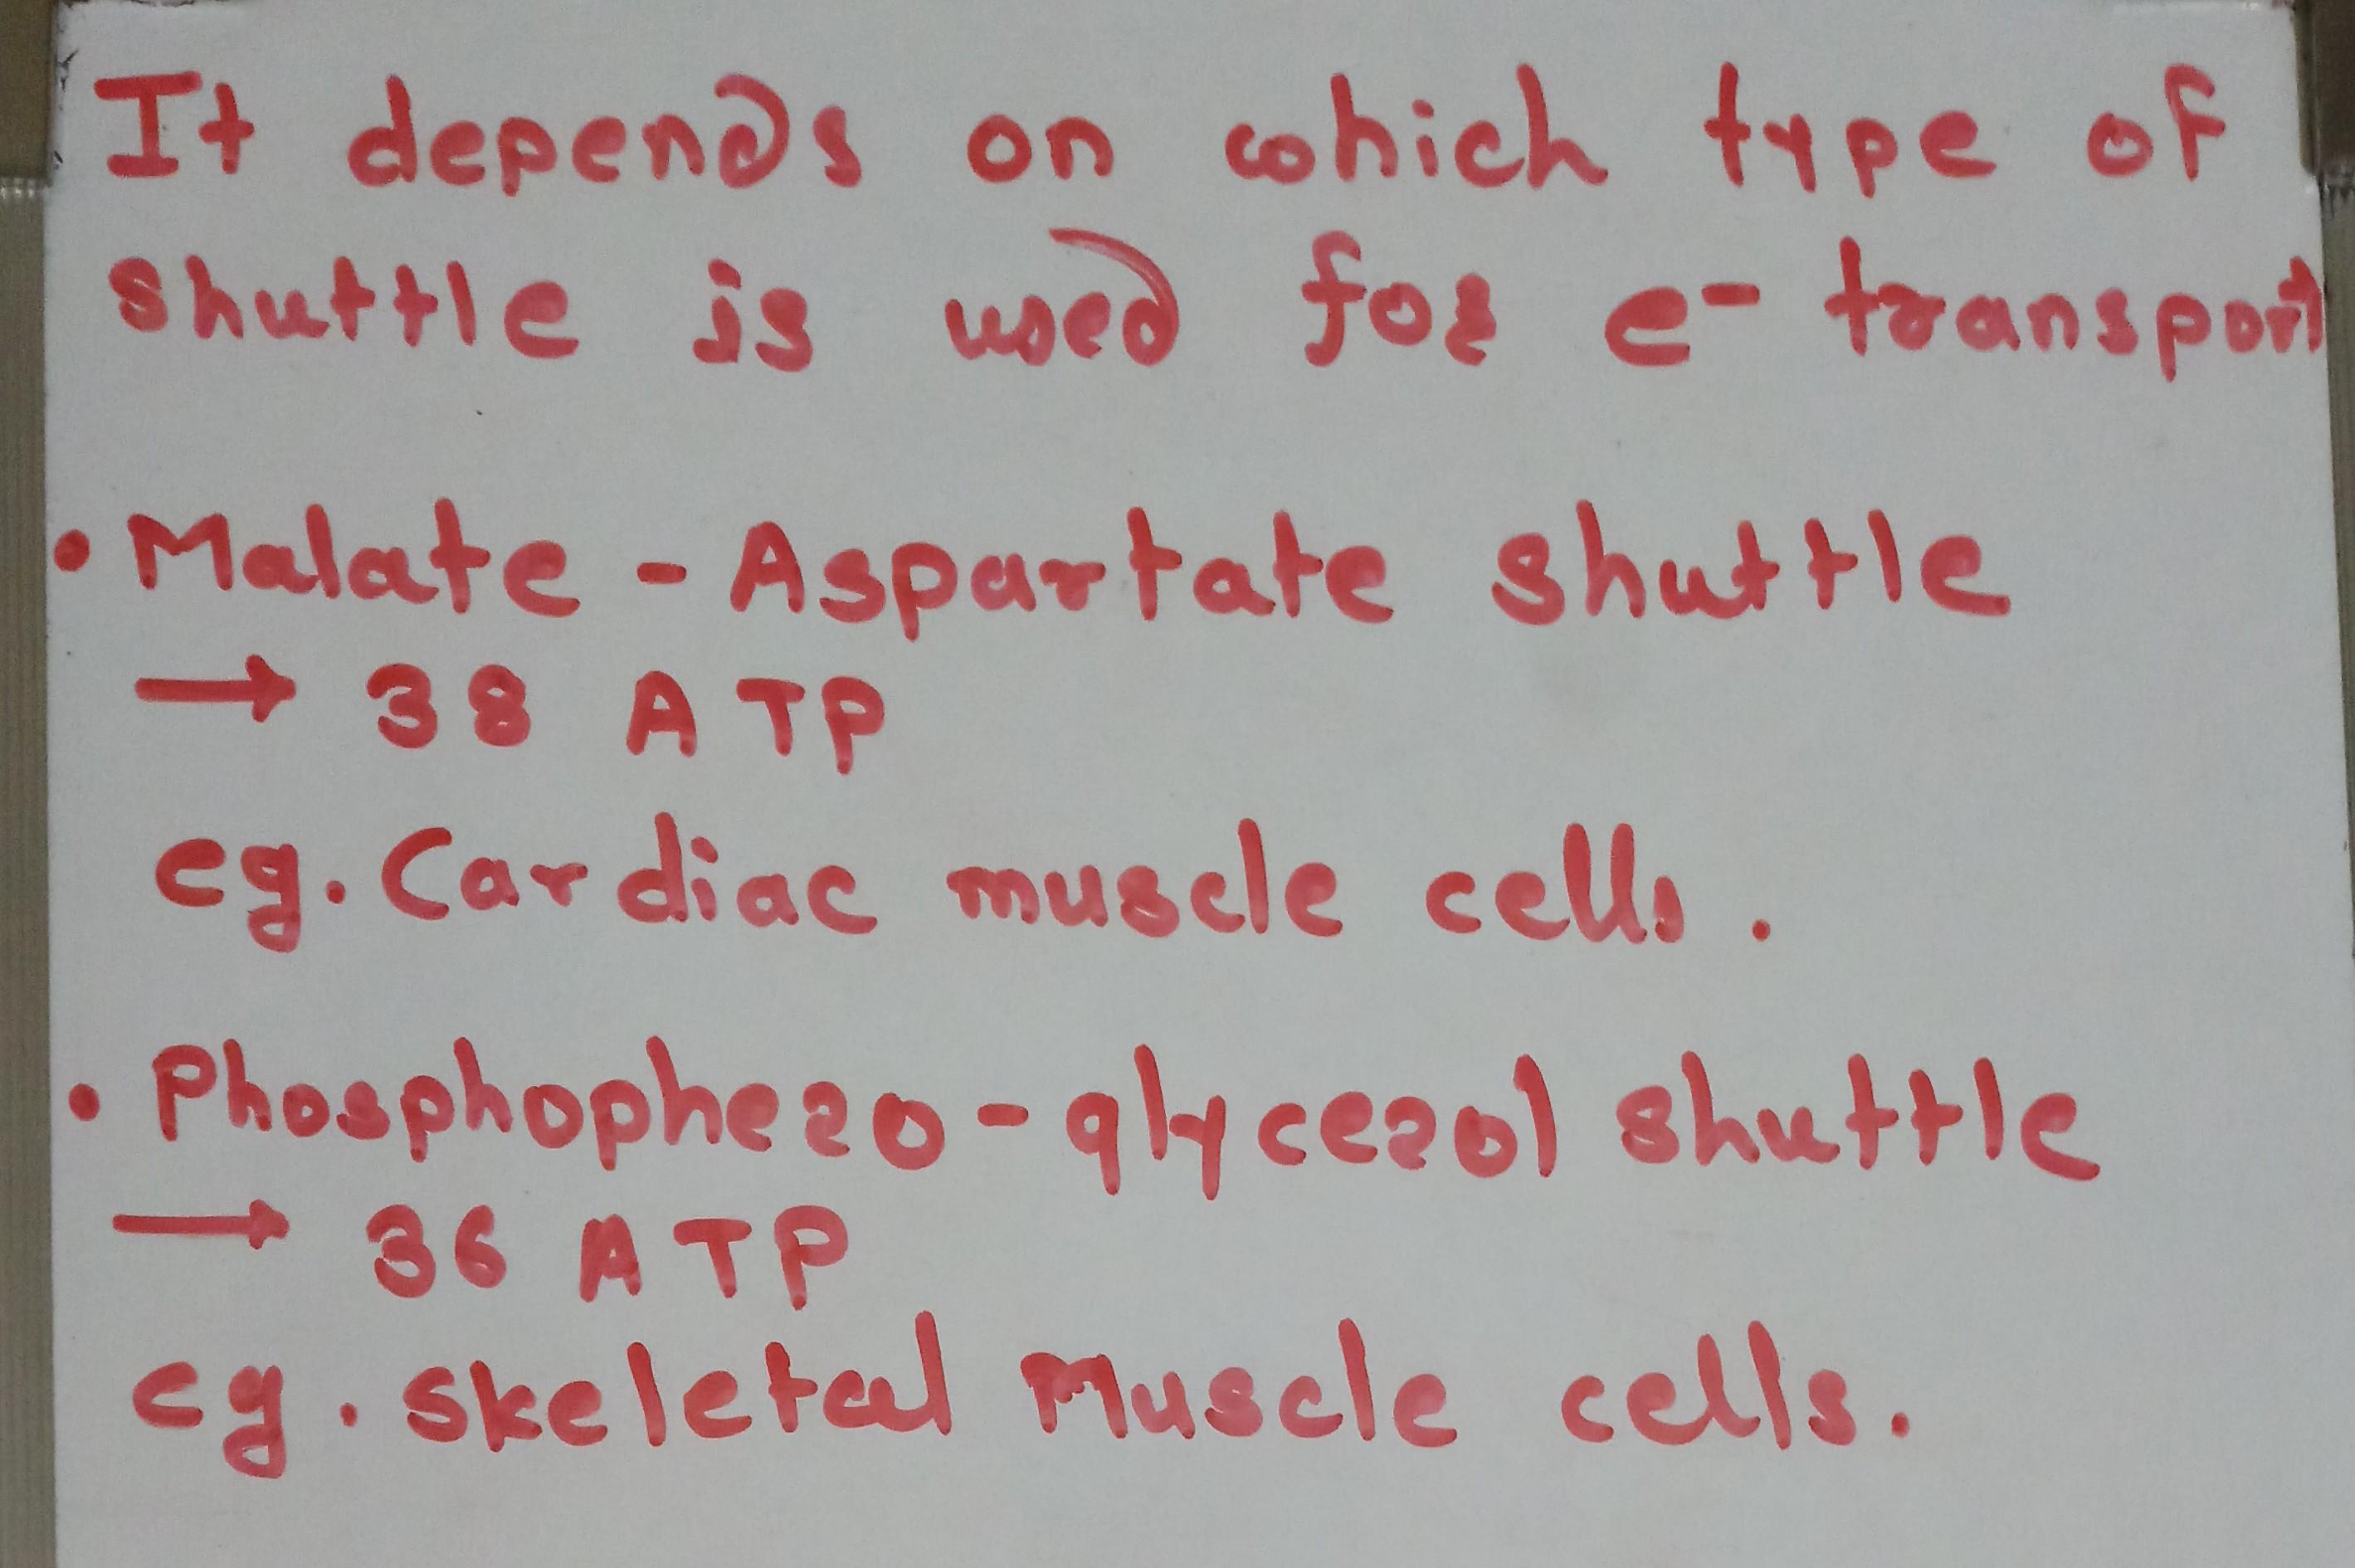 It depends on which type of
shuttle is used for e⁻ transport
• Malate - Aspartate shuttle
→ 38 ATP
eg. Cardiac muscle cells.
• Phosphophero-glycerol shuttle
→ 36 ATP
eg. skeletal Muscle cells.